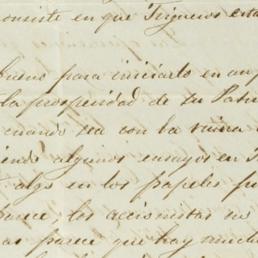 consiste en que Trigueros esta
bueno para iniciarlo en un p
la prosperidad de tu Patri
cuando sea con la ruina
iendo algunos ensayos en
algo en los papeles pu
los accionistas no
as parece que hay mucho